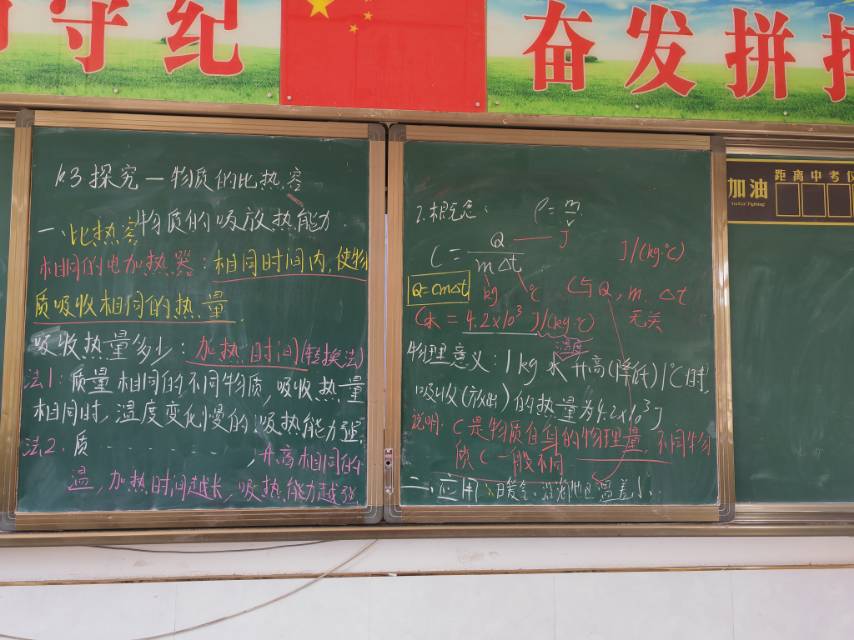 守纪
奋发拼搏
加油
距离中考仅
1.3 探究—物质的比热容
一、比热容 物质的吸放热能力.
相同的电加热器：相同时间内，使物
质吸收相同的热量.
吸收热量多少：加热时间(转换法)
法1：质量相同的不同物质，吸收热量
相同时，温度变化慢的吸热能力强.
法2．质 · · · · · · ，升高相同的
温，加热时间越长，吸热能力越强
2.概念：
ρ=m/v
C = Q/mΔt
J
J/(kg·℃)
Q=cmΔt
kg
℃
C与Q，m．Δt
无关
C水 = 4.2×10³ J/(kg·℃)
温度
物理意义：1kg水升高(降低)1℃时，
吸收(放出)的热量为4.2×10³J
说明：C是物质自身的物理量，不同物
质C一般不同
二、应用：暖气、沿海地区温差小.